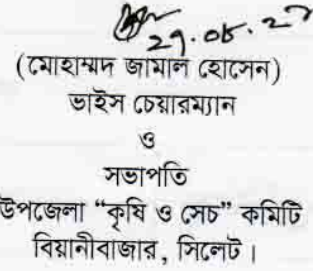 29.08.23
(মোহাম্মদ জামাল হোসেন)
ভাইস চেয়ারম্যান
ও
সভাপতি
উপজেলা “কৃষি ও সেচ” কমিটি
বিয়ানীবাজার, সিলেট।